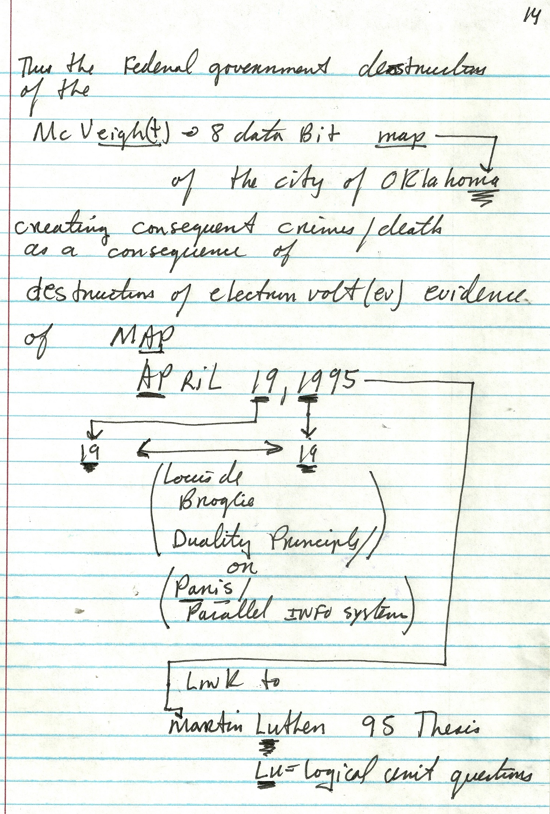 14
Thus the Federal government destruction
of the
McVeigh(t) → 8 data Bit map
of the city of OKlahoma
creating consequent crimes/death
as a consequence of
destruction of electron volt (ev) evidence
of MAP
APRiL 19, 1995
19 ↔ 19
(Louis de
Broglie
Duality Principle/)
or
(Paris/
Parallel INFO system)
Link to
Martin Luther 95 Thesis
Lu = Logical unit questions